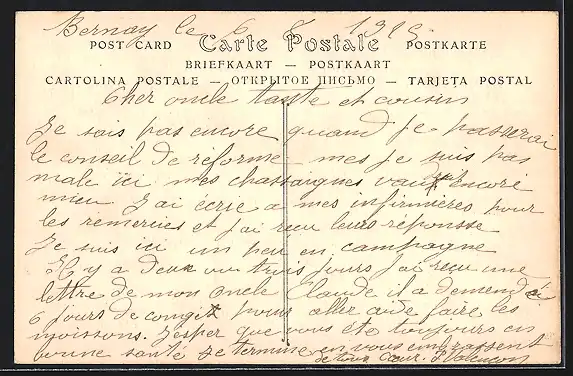 Bernay le 6 8 1915
POST CARD Carte Postale POSTKARTE
BRIEFKAART — POSTKAART
CARTOLINA POSTALE — ОТКРЫТОЕ ПИСЬМО — TARJETA POSTAL
Cher oncle tante et cousin
Je sais pas encore quand je passerai
le conseil de réforme mes je suis pas
male içi mes chassaignes vaux encore
mieu J ai écrie a mes infirmières pour
les remerciés et j ai reçu leurs réponsse
Je suis ici un peu en campagne
Il y a deux ou trois jours j ai reçu une
lettre de mon oncle Claude il a demendé
6 jours de congix pour aller aidé faire les
moissons. Jesper que vous éte toujours en
bonne santé Je termine en vous embrassent
de tout cœur.